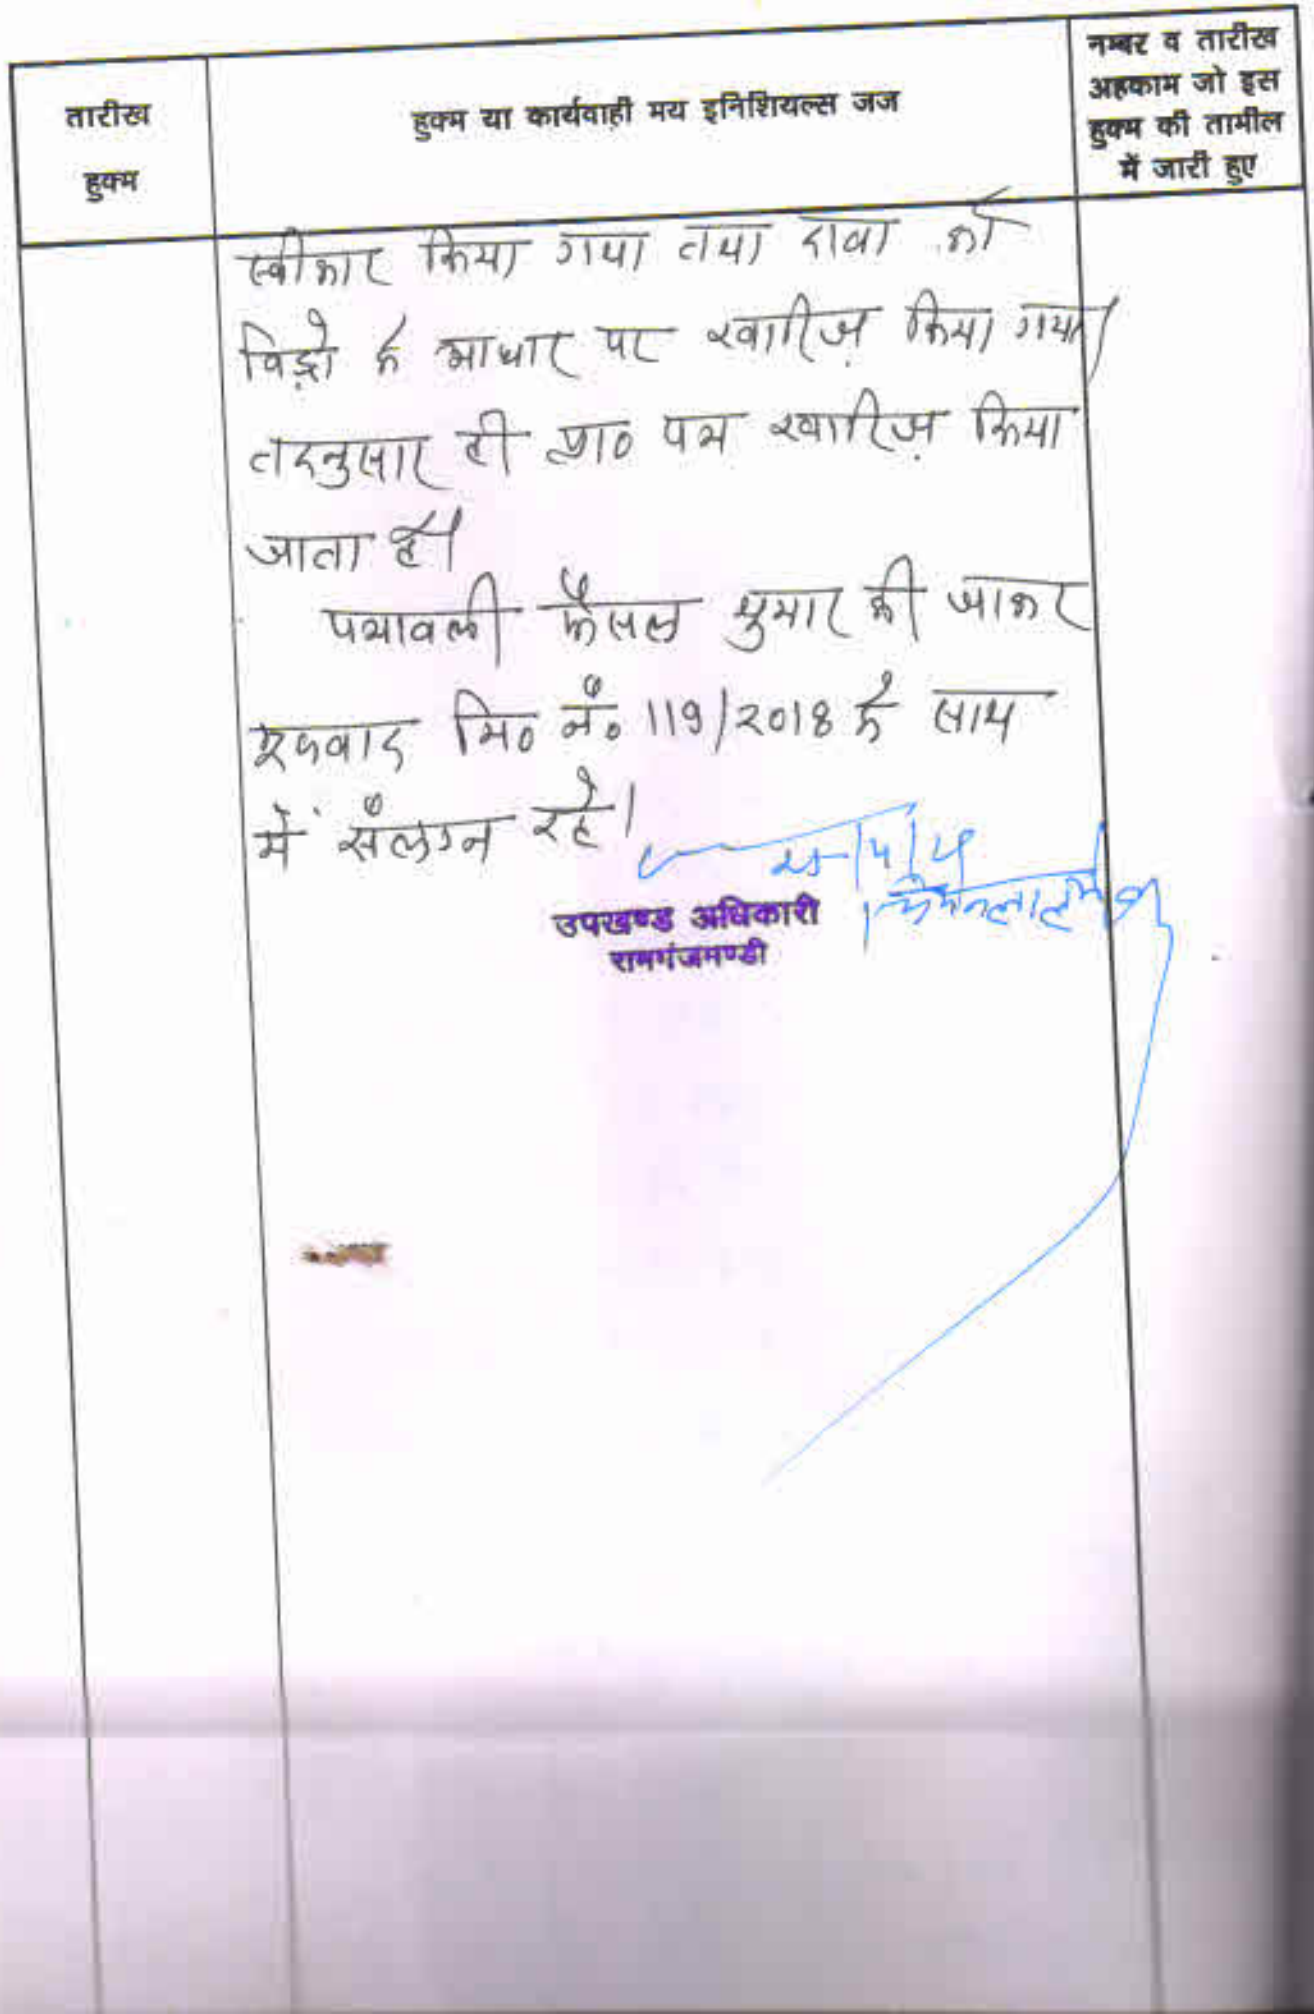 तारीख
हुक्म
हुक्म या कार्यवाही मय इनिशियल्स जज
नम्बर व तारीख
अहकाम जो इस
हुक्म की तामील
में जारी हुए
स्वीकार किया गया तथा दावा को
विड्रो के आधार पर खारिज़ किया गया।
तदनुसार ही प्रा० पत्र खारिज़ किया
जाता है।
पत्रावली फैसल शुमार की जाकर
मि० नं० 119/2018 के साथ
में संलग्न रहे।
उपखण्ड अधिकारी
रामगंजमण्डी